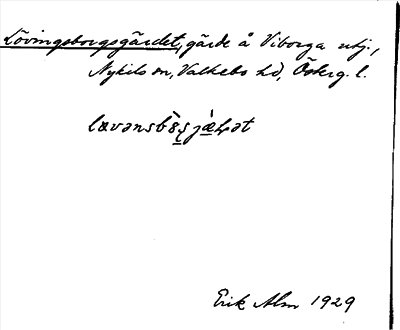 Lövingsborgsgärdet, gärde å Viborga utj.,
Nykils sn, Valkebo hd, Österg. l.
Erik Alm 1929